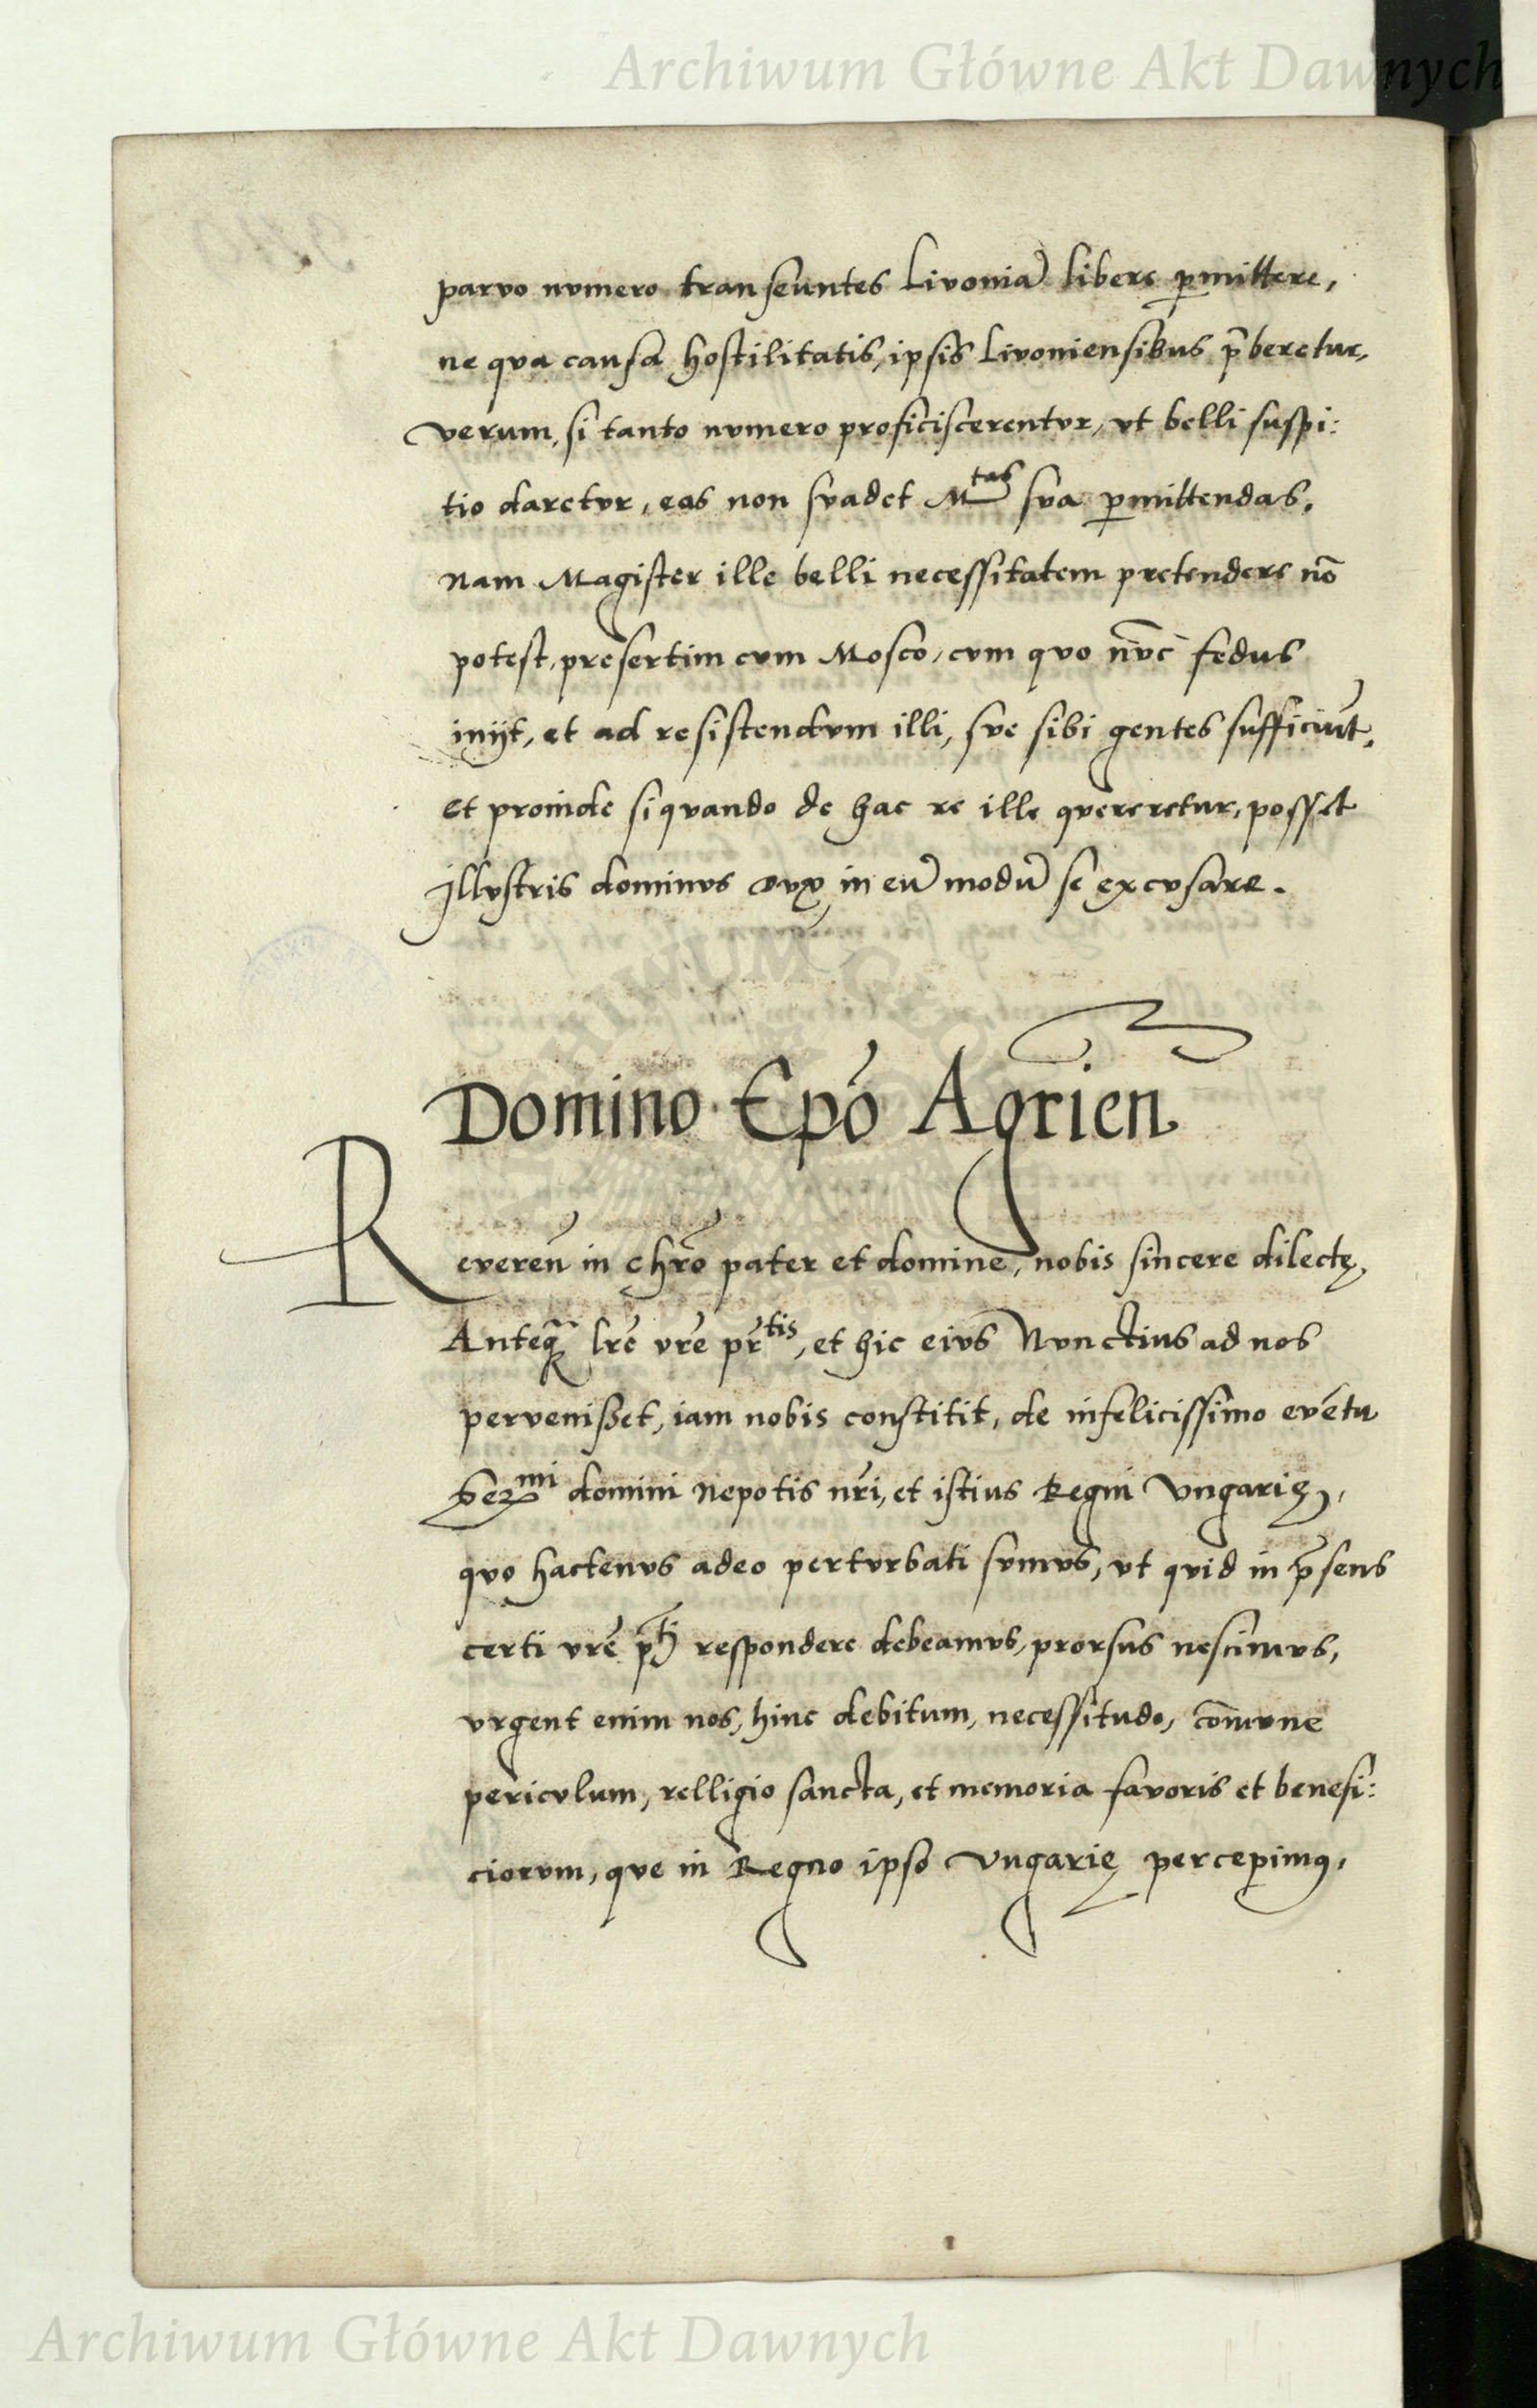 Archiwum Główne Akt Dawnych
parvo nvmero transeuntes Livoniā libere p̲mittere,
ne qva causa hostilitatis, ipsis Livoniensibus p̄beretur,
verum, si tanto nvmero proficiscerentvr, vt belli suspi:
tio daretvr, eas non svadet M^tas sva p̲mittendas.
nam Magister ille belli necessitatem pretendere nō
potest, presertim cvm Mosco, cvm qvo nv̄c fedus
inijt, et ad resistendvm illi, sve sibi gentes sufficiūt,
et proinde siqvando de hac re ille qvereretur, posset
Jllvstris dominvs Dvx in eū modū se excvsare.
Domino Ep̄o Agrien
Reveren̄ in chr̄o pater et domine, nobis sincere dilectę,
Anteq̄ʒ lr̄e vr̄e pr̄^tis, et hic eivs Nvnctius ad nos
pervenißet, iam nobis constitit, de infelicissimo evētu
Ser^mi domini nepotis nr̄i, et istius Regni Vngarię,
qvo hactenvs adeo pertvrbati svmvs, vt qvid in p̄sens
certi vr̄e p^tj respondere debeamvs, prorsus nescimvs,
vrgent enim nos, hinc debitum, necessitudo, cōmvne
pericvlum, relligio sancta, et memoria favoris et benefi:
ciorvm, qve in Regno ipso Vngarię percepimꝰ,
Archiwum Główne Akt Dawnych